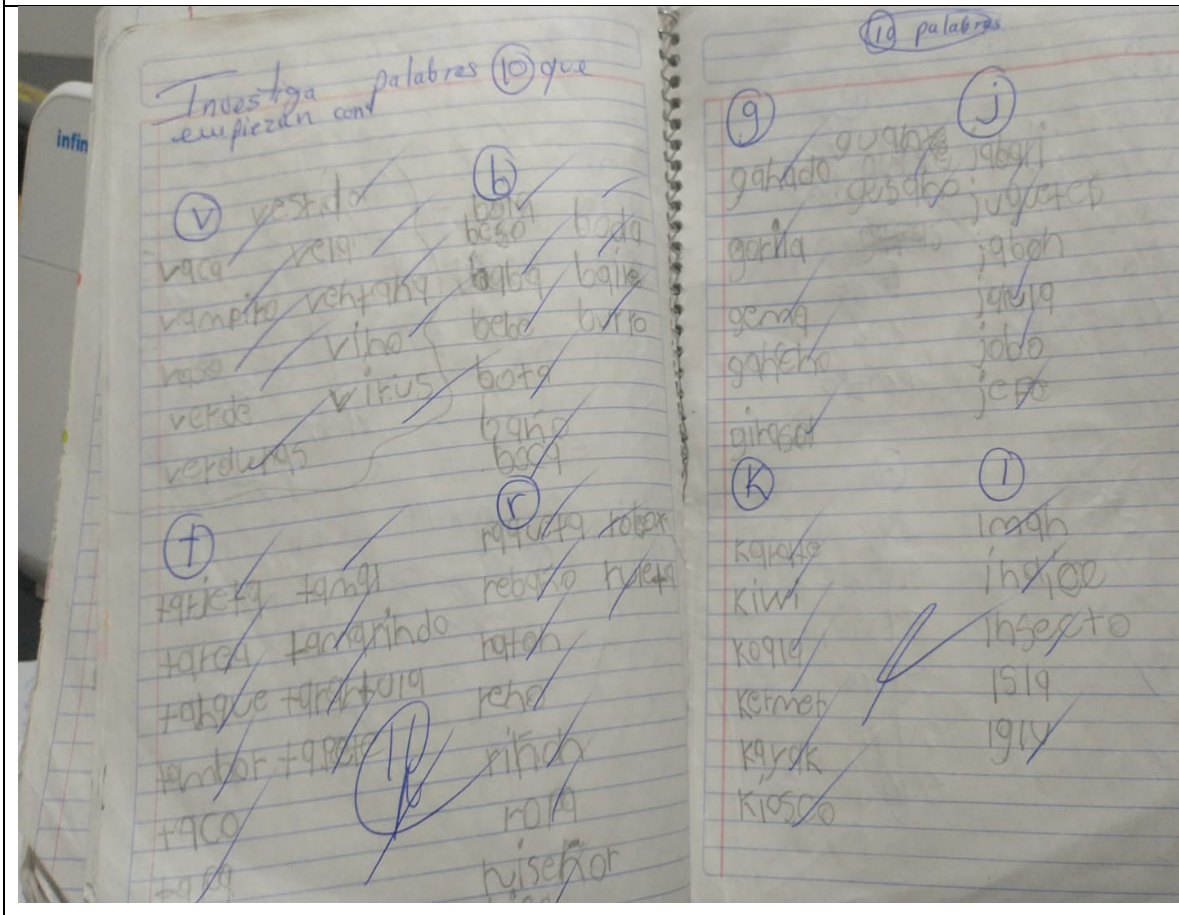 infin
Investiga palabras 10 que
empiezan con
v
vestido
vaca vela
vampiro ventana
vaso vino
verde virus
verduras
b
beso boda
baba baile
bebe burro
bota
baño
boca
t
tarjeta tamal
tarea tamarindo
tanque tarantula
tambor tapete
taco
r
raqueta robot
rebaño ruleta
raton
reno
rincon
ropa
ruiseñor
10 palabras
g
ganado
gusano
gorila
gema
girasol
j
jabali
juguetes
jabon
jaula
jobo
jefe
k
karate
kiwi
koala
kermer
kayak
kiosco
I
iman
insecto
isla
iglu